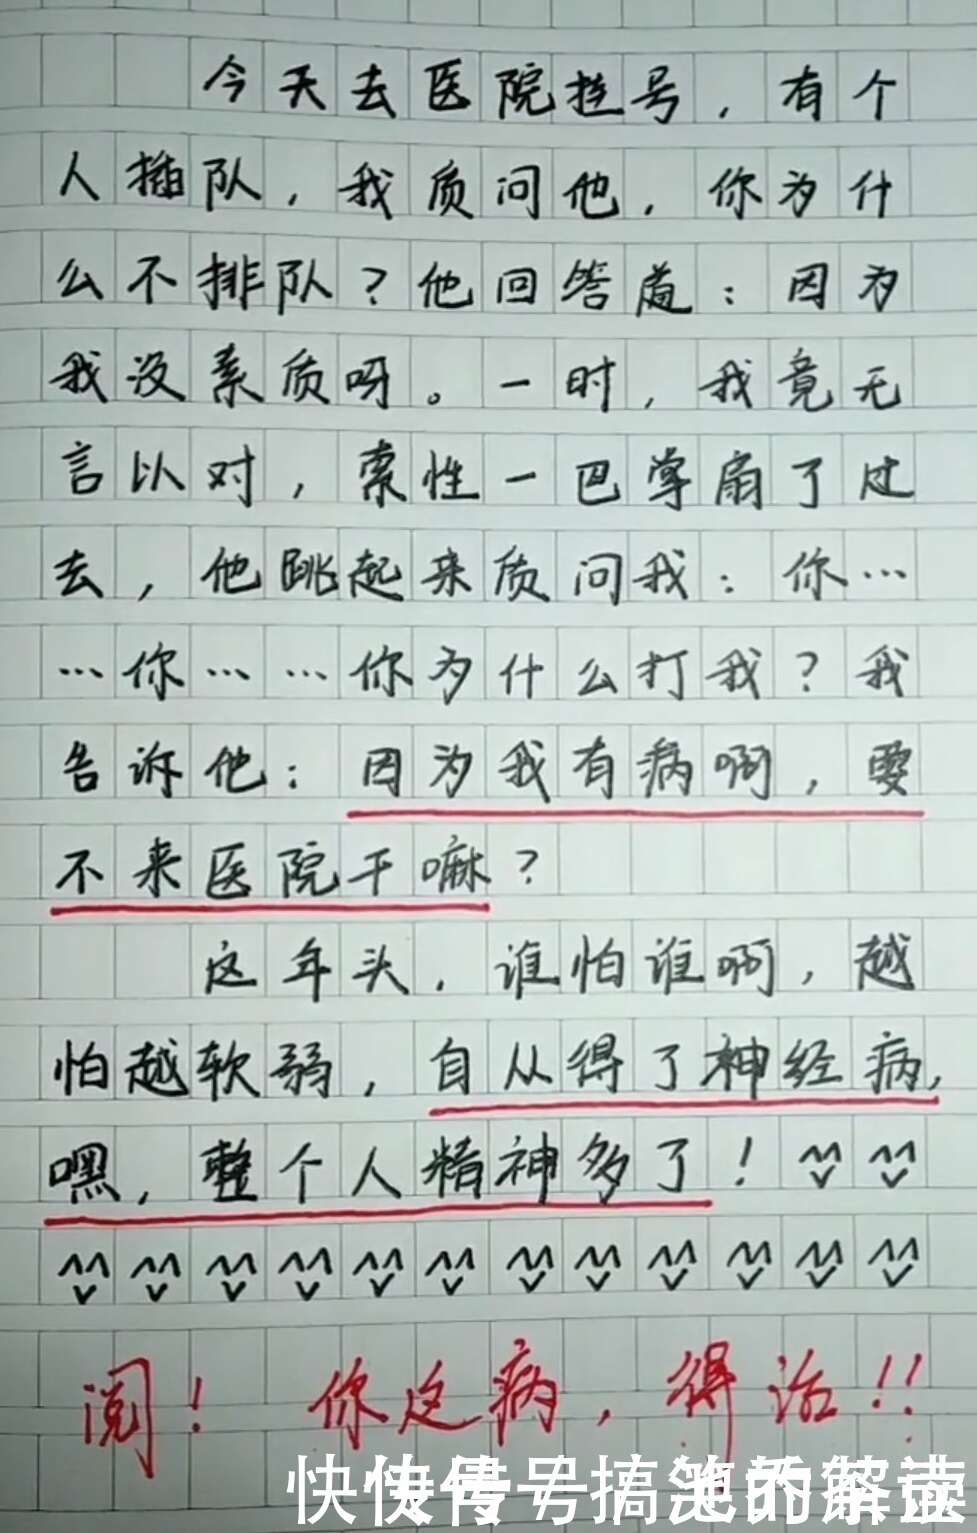 今天去医院挂号，有个
人插队，我质问他，你为什
么不排队？他回答道：因为
我没素质呀。一时，我竟无
言以对，索性一巴掌扇了过
去，他跳起来质问我：你…
…你……你为什么打我？我
告诉他：因为我有病啊，要
不来医院干嘛？
这年头，谁怕谁啊，越
怕越软弱，自从得了神经病，
嘿，整个人精神多了！
阅！ 你这病，得治!!
快传号